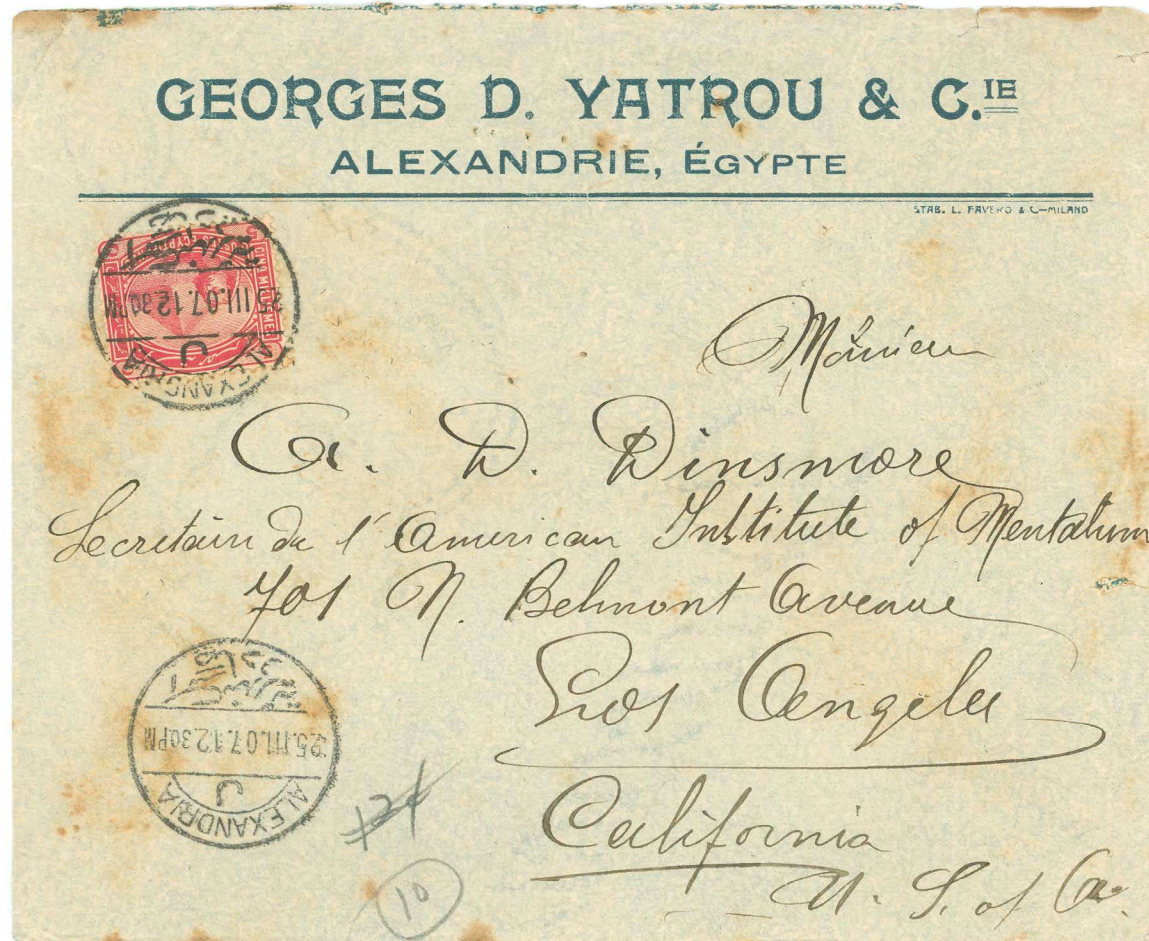 GEORGES D. YATROU & C.IE
ALEXANDRIE, ÉGYPTE
STAB. L. FAVERO & C.—MILANO
25 III.07.12 30 PM
ALEXANDRIA
Monsieur
A. D. Dinsmore
Secrétaire de l'American Institute of Mentalism
701 N. Belmont Avenue
Los Angeles
California
U. S. of A.
25.III.07.12 30 PM
ALEXANDRIA
10